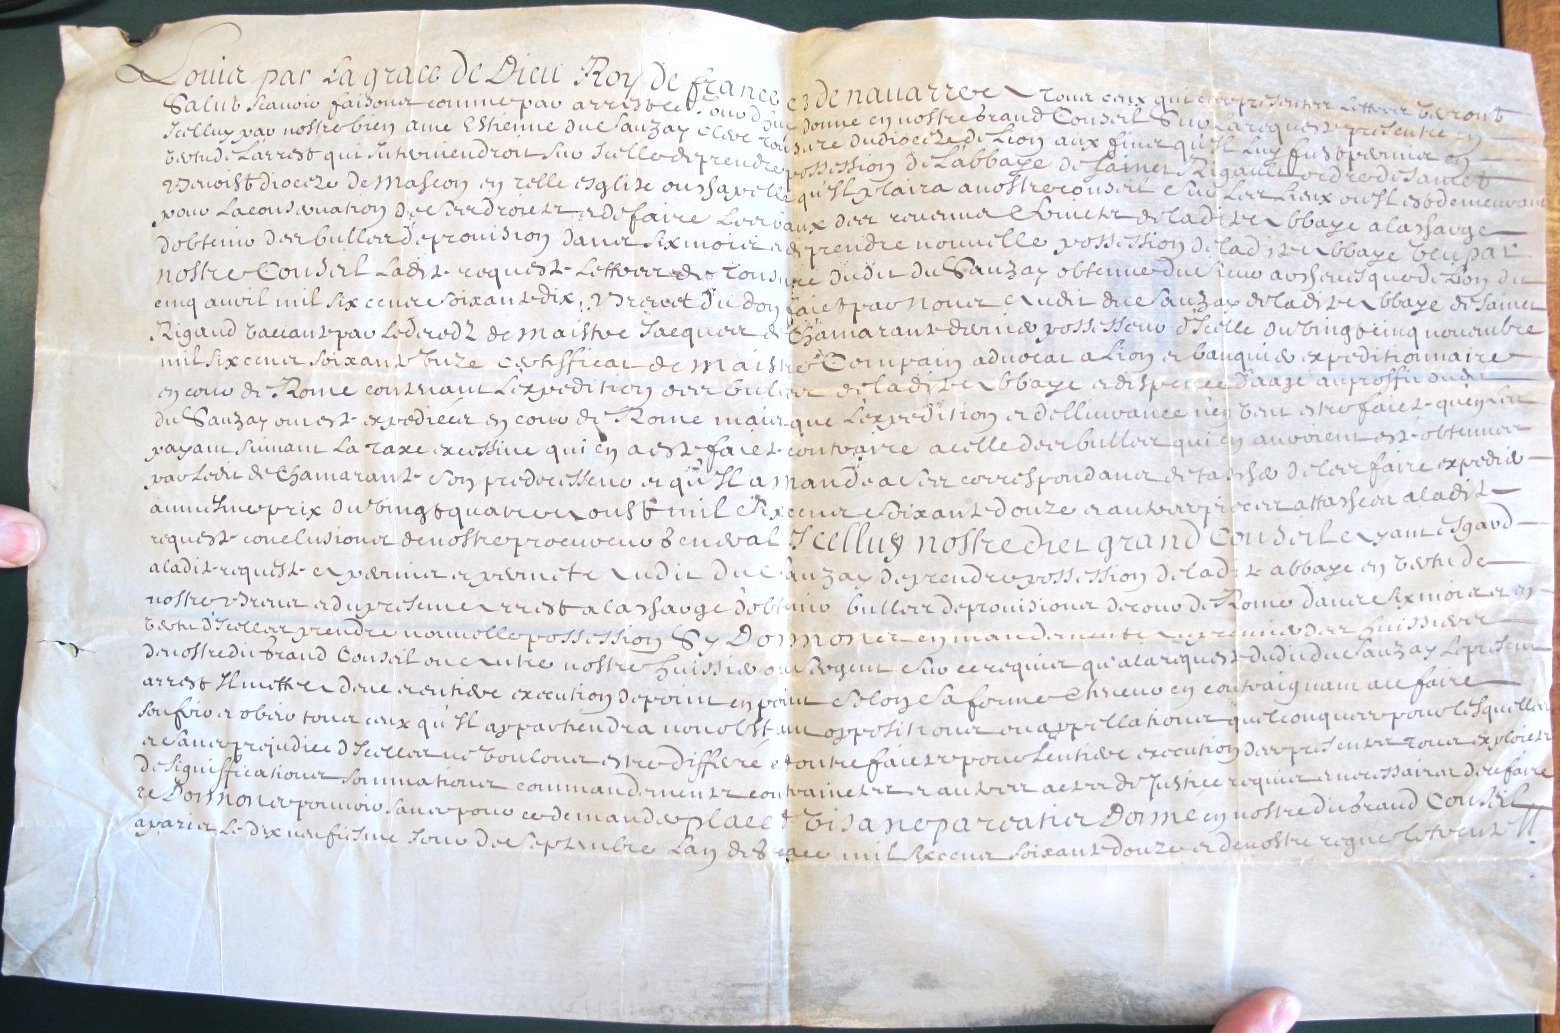 Louis par la grace de Dieu Roy de france et de navarre A tous ceux qui ces presentes Lettres verront
Salut scavoir faisons comme par arrest ce Jourd'huy donne en nostre Grand Conseil Sur la requeste presentee en
Icelluy par nostre bien ame Estienne du Sauzay clerc tonsure du diocese de Lion aux fins qu'Il luy fust permis en
vertu de L'arrest qui Interviendroit sur Icelle de prendre possession de L'abbaye de Sainct Rigault ordre de Sainct
Benoist diocese de Mascon en telle esglise ou chapelle qu'Il plaira a nostre conseil Sur les Lieux ou Il est demeurant
pour La conservation de ses droits et de faire Les baux des revenus et fruicts de ladite Abbaye a la charge
d'obtenir des bulles de provision dans six mois et de prendre nouvelle possession de ladite Abbaye veu par
nostre Conseil Ladite requeste Lettres de tonsure dudit du Sauzay obtenue du sieur archevesque de Lion du
cinq avril mil six cens soixante dix, Brevet du don faict par nous Audit du Sauzay de ladite Abbaye de Sainct
Rigaud vaccante par Le deceds de Maistre Jacques de Chamarante dernier possesseur d'Icelle du vingt cinq novembre
mil six cens soixante unze Certifficat de Maistre Compain advocat a Lion et banquier expeditionnaire
en cour de Rome contenant L'expedition des bulles de ladite Abbaye et dispence d'aage au proffit dudit
du Sauzay ont esté expediees en cour de Rome mais que L'expedition et dellivrance n'en peut estre faicte qu'en les
payant suivant La taxe excessive qui en a esté faicte contraire a celle des bulles qui en avoient esté obtenues
par Ledit de Chamarante Son predecesseur et qu'Il a mandé a ses correspondans de tascher de les faire expedier
au mesme prix du vingt quatre Aoust mil Six cens Soixante douze et autres pieces attachees a ladite
requeste conclusions de nostre procureur General Icelluy nostredict grand Conseil Ayant esgard
a ladite requeste A permis et permet Audit du Sauzay de prendre possession de ladite abbaye en vertu de
nostre Brevet et du present Arrest a la charge d'obtenir bulles de provisions de cour de Rome dans six mois et en
vertu d'Icelles prendre nouvelle possession Sy Donnons en mandement Au premier des huissiers
de nostredit Grand Conseil ou Autre nostre huissier ou Sergent Sur ce requis qu'a la requeste dudit du Sauzay Le present
arrest Il mette A deue et entiere execution de point en point Selon Sa forme et teneur en contraignant a ce faire
souffrir et obeir tous ceux qu'Il appartiendra nonobstant oppositions ou appellations quelconques pour lesquelles
et sans prejudice d'Icelles ne voulons estre differé et outre faire pour L'entiere execution des presentes tous exploicts
de Significations sommations commandements contrainctes et autres actes de Justice requis et necessaires de ce faire
te Donnons pouvoir sans pour ce demander placet Visa ne pareatis Donné en nostredit Grand Conseil
a paris Le dix neufiesme Jour de Septembre L'an de Grace mil Six cens soixante douze et de nostre regne le trente